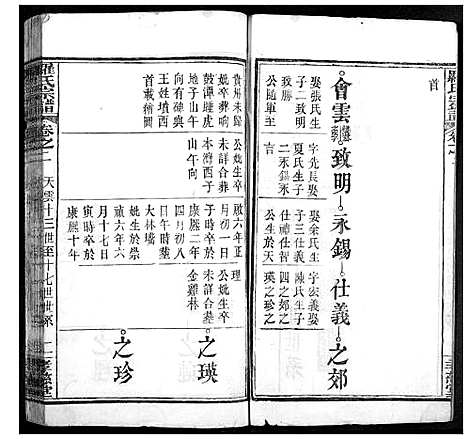 首
會雲
致明
永錫
仕義
之郊
娶張氏生
子二致明
致勝
公隨軍主
字先長娶
夏氏生子
二永錫永
娶余氏生
子三仕義
仕神仕智
公生於天
字宏義娶
陳氏生子
四之郊之
瑛之珍之
貴州未歸
鼓潭睡虎
向有碑與
首載楢圖
公妣生卒
未詳合葬
本灣酉子
山午向
啟六年正
月初一日
子時卒於
康熙二年
四月初八
日午時葬
大林壋
妣生於崇
禎六年六
月十七日
寅時卒於
康熙十年
理
公妣生卒
未詳合葬
金雞林
之瑛
之珍
羅氏宗譜
卷之
天雲十三世至十七世世系
二
孝慈堂